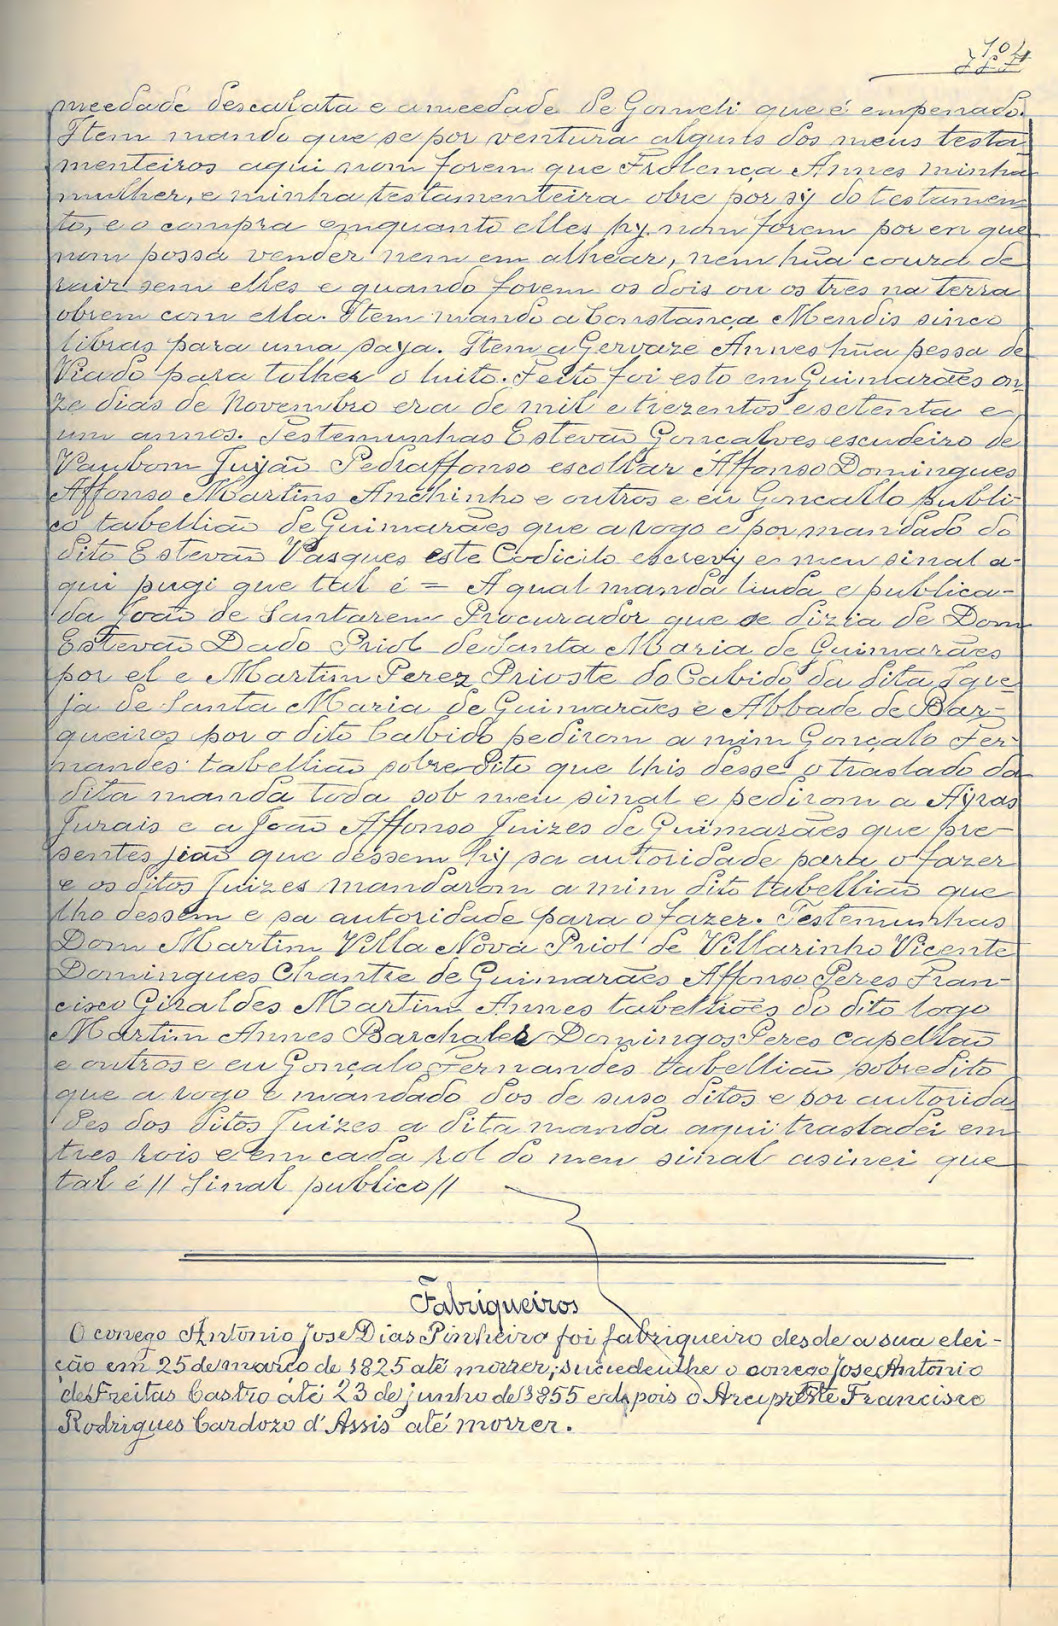 104
meedade descalata e ameedade de Gomeli que é empenado.
Item mando que se por ventura alguns dos meus testa-
menteiros aqui nom forem que Frolença Annes minha
mulher, e minha testamenteira obre por sy do testamen-
to, e o compra emquanto elles hy nom forem por en que
nom possa vender nem em alhear, nem hũa cousa de
rair sem elles e quando forem os dois ou os tres na terra
obrem com ella. Item mando a Constança Mendis sinco
libras para uma saya. Item a Gervaze Annes hũa pessa de
Viado para tolher o luito. Feito foi esto em Guimarães on-
ze dias de Novembro era de mil e trezentos e setenta e
um annos. Testemunhas Estevão Gonçalves escudeiro de
Vaubom Juyão Pedraffonso escollar Affonso Domingues
Affonso Martins Anchinho e outros e eu Goncallo publi-
co tabellião de Guimarães que a rogo e por mandado do
dito Estevão Vasques este Codicilo escrevy e meu sinal a-
qui pugi que tal é = A qual manda liuda e publica-
da João de Santarem Procurador que se dizia de Dom
Estevão Dado Priol de Santa Maria de Guimarães
por el e Martim Perez Prioste do Cabido da dita Igre-
ja de Santa Maria de Guimarães e Abbade de Bar-
queiros por o dito Cabido pedirom a mim Gonçalo Fer-
nandes tabellião sobredito que lhis desse o traslado da
dita manda toda sob meu sinal e pedirom a Ayras
Jurais e a João Affonso Juizes de Guimarães que pre-
sentes jião que dessem hy sa autoridade para o fazer
e os ditos Juizes mandarom a mim dito tabellião que
lho dessem e sa autoridade para o fazer. Testemunhas
Dom Martim Villa Nova Priol de Villarinho Vicente
Domingues Chantre de Guimarães Affonso Peres Fran-
cisco Giraldes Martim Annes tabelliões do dito logo
Martim Annes Barchaler Domingos Peres capellão
e outros e eu Gonçalo Fernandes tabellião sobredito
que a rogo e mandado dos de suso ditos e por autorida-
des dos ditos Juizes a dita manda aqui trasladei em
tres rois e em cada rol do meu sinal asinei que
tal é // Sinal publico //
Fabriqueiros
O conego António Jose Dias Pinheiro foi fabriqueiro desde a sua elei-
ção em 25 de março de 1825 até morrer; sucedeu lhe o conego Jose António
de Freitas Castro até 23 de junho de 1855 e depois o Arcipreste Francisco
Rodrigues Cardozo d'Assis até morrer.